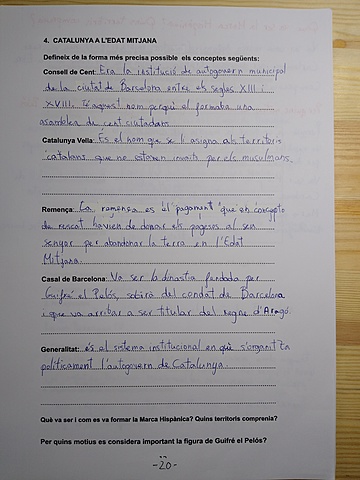 4. CATALUNYA A L'EDAT MITJANA
Defineix de la forma més precisa possible els conceptes següents:
Consell de Cent: Era la institució de autogovern municipal
de la ciutat de Barcelona entre els segles XIII i
XVIII. D'aquest nom perquè el formaba una
asamblea de cent ciutadans
Catalunya Vella: És el nom que se li asigna als territoris
catalans que no estaven invaits per els musulmans.
Remença: La remença es el pagament que en concepto
de rescat havien de donar els pagesos al seu
senyor per abandonar la terra en l'Edat
Mitjana.
Casal de Barcelona: Va ser la dinastia fundada per
Guifré el Pelós, sobirà del condat de Barcelona
i que va arribar a ser titular del regne d'Aragó
Generalitat: és el sistema institucional en què s'organitza
políticament l'autogovern de Catalunya.
Què va ser i com es va formar la Marca Hispànica? Quins territoris comprenia?
Per quins motius es considera important la figura de Guifré el Pelós?
-20-